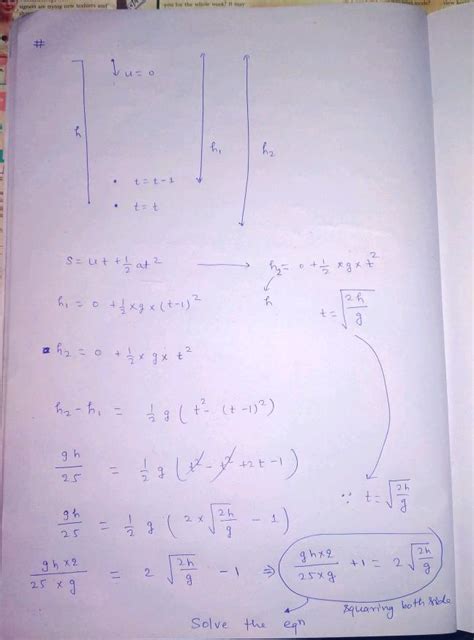 signers are trying new leathers and
you for the whole week? It may
#
u = 0
h
h₁
h₂
t = t-1
t = t
s = ut + ½ at²
h₂ = 0 + ½ × g × t²
h
h₁ = 0 + ½ × g × (t-1)²
t = √(2h/g)
h₂ = 0 + ½ × g × t²
h₂ - h₁ = ½ g ( t² - (t-1)² )
gh/25 = ½ g ( t² - t² + 2t - 1 )
∵ t = √(2h/g)
gh/25 = ½ g ( 2 × √(2h/g) - 1 )
gh×2/25×g = 2 √(2h/g) - 1 ⇒ gh×2/25×g + 1 = 2 √(2h/g)
squaring both side
Solve the eqn